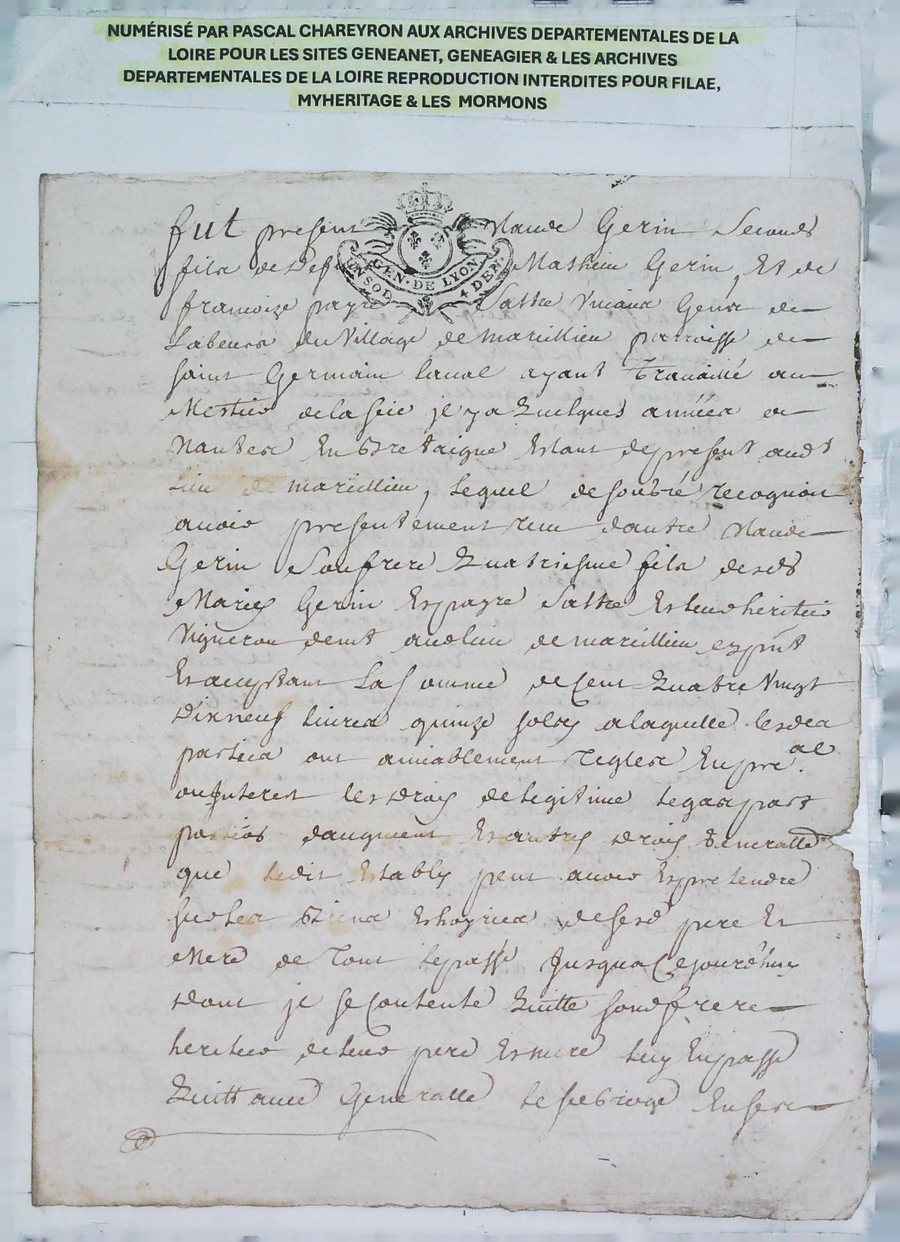 NUMÉRISÉ PAR PASCAL CHAREYRON AUX ARCHIVES DEPARTEMENTALES DE LA
LOIRE POUR LES SITES GENEANET, GENEAGIER & LES ARCHIVES
DEPARTEMENTALES DE LA LOIRE REPRODUCTION INTERDITES POUR FILAE,
MYHERITAGE & LES MORMONS
GEN. DE LYON
UN SOL 4 DEN.
fut present Claude Gerin Second
fils de deft Mathieu Gerin, Et de
francoize payre Gens de
Labeurs du Village de marcillieu parroisse de
saint Germain laval ayant Travaillé au
Mestier il y a quelques années a
Nantes En Bretaigne Estant de present audt
lieu de marcillieu, Lequel de son gré recognoit
avoir presentement receu dautre Claude
Gerin Son frere quatriesme fils desds
Mariés Gerin Et payre Et leur heritier
Vigneron demt audlieu de marcillieu, 
Et acceptant La somme de Cent quatre Vingt
Dix neuf livres quinze solz a laquelle lesdes
parties ont amiablement regles En pral
ou Interest les droits de legitime legas part
portions daugment Et autres droits Generallt
que ledit Estably peut avoir Et pretendre
sur les Biens Et hoyries de sesd pere Et
Mere de Tout le passé Jusqua Cejourdhuy
dont je se Contente quitte sondt frere
heritier de leur pere Et mere luy En passe
quittance Generalle En